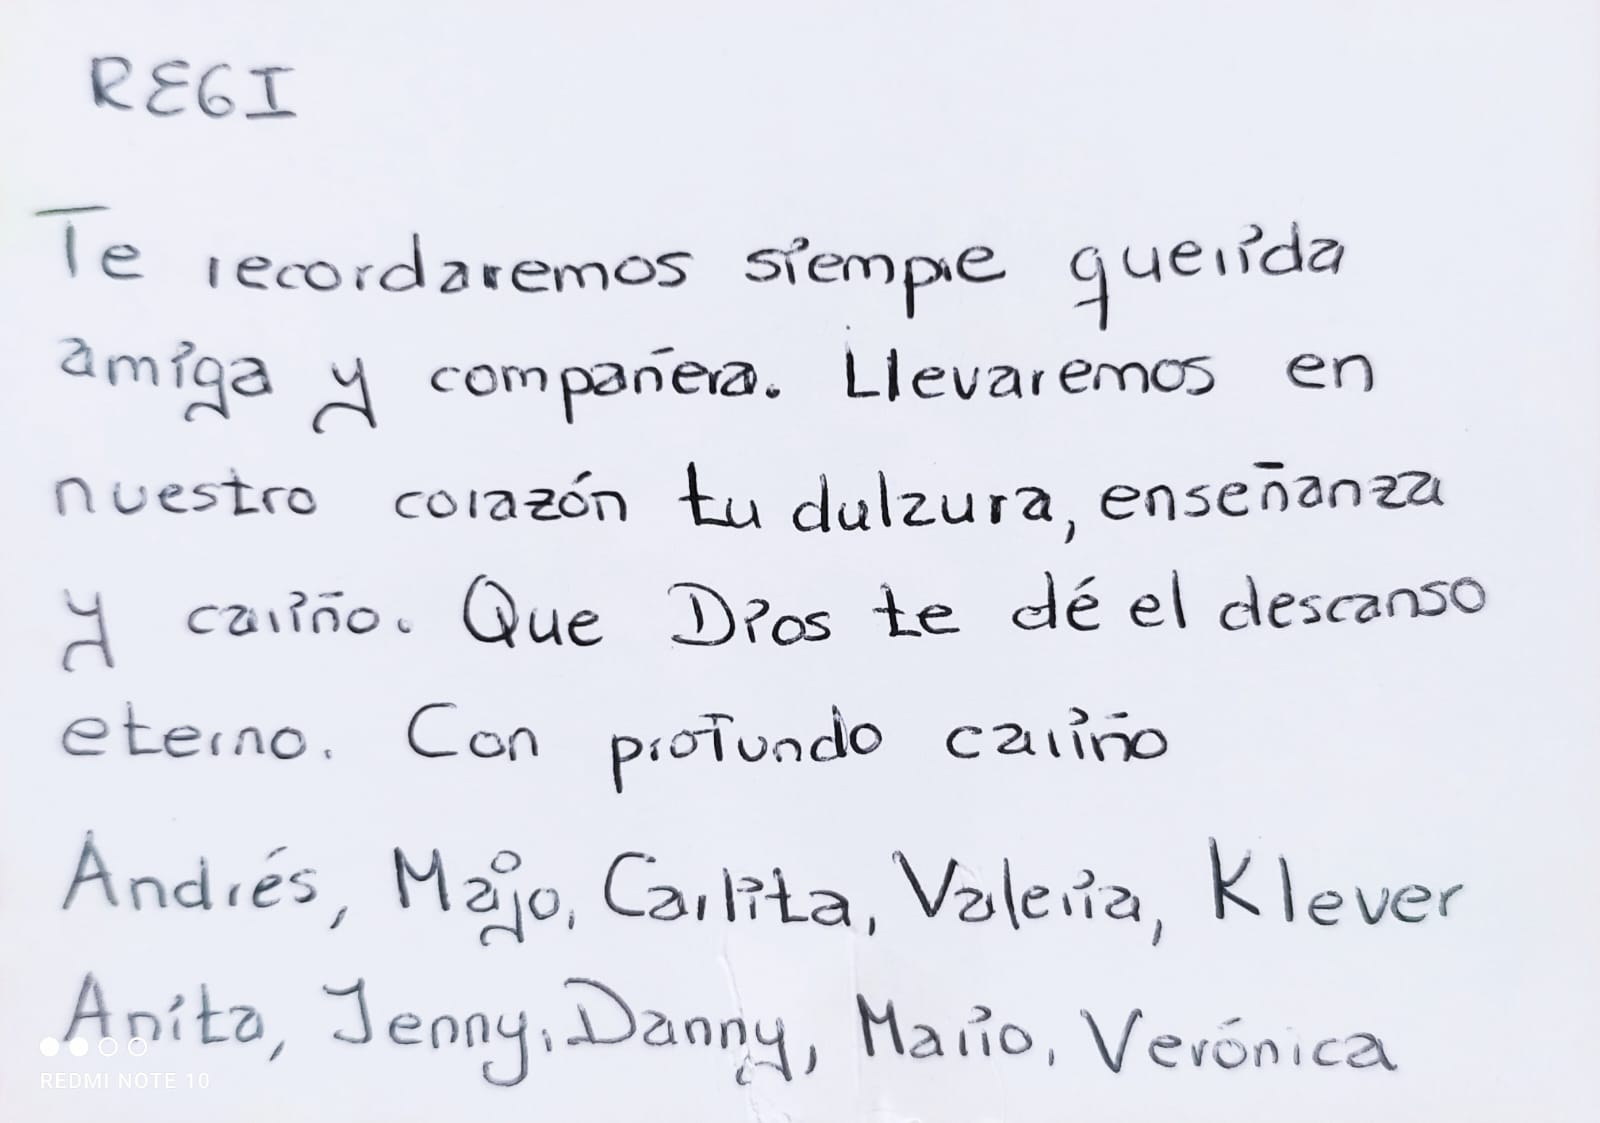 REGI
Te recordaremos siempre querida
amiga y compañera. Llevaremos en
nuestro corazón tu dulzura, enseñanza
y cariño. Que Dios te dé el descanso
eterno. Con profundo cariño
Andrés, Majo, Carlita, Valeria, Klever
Anita, Jenny, Danny, Mario, Verónica
REDMI NOTE 10